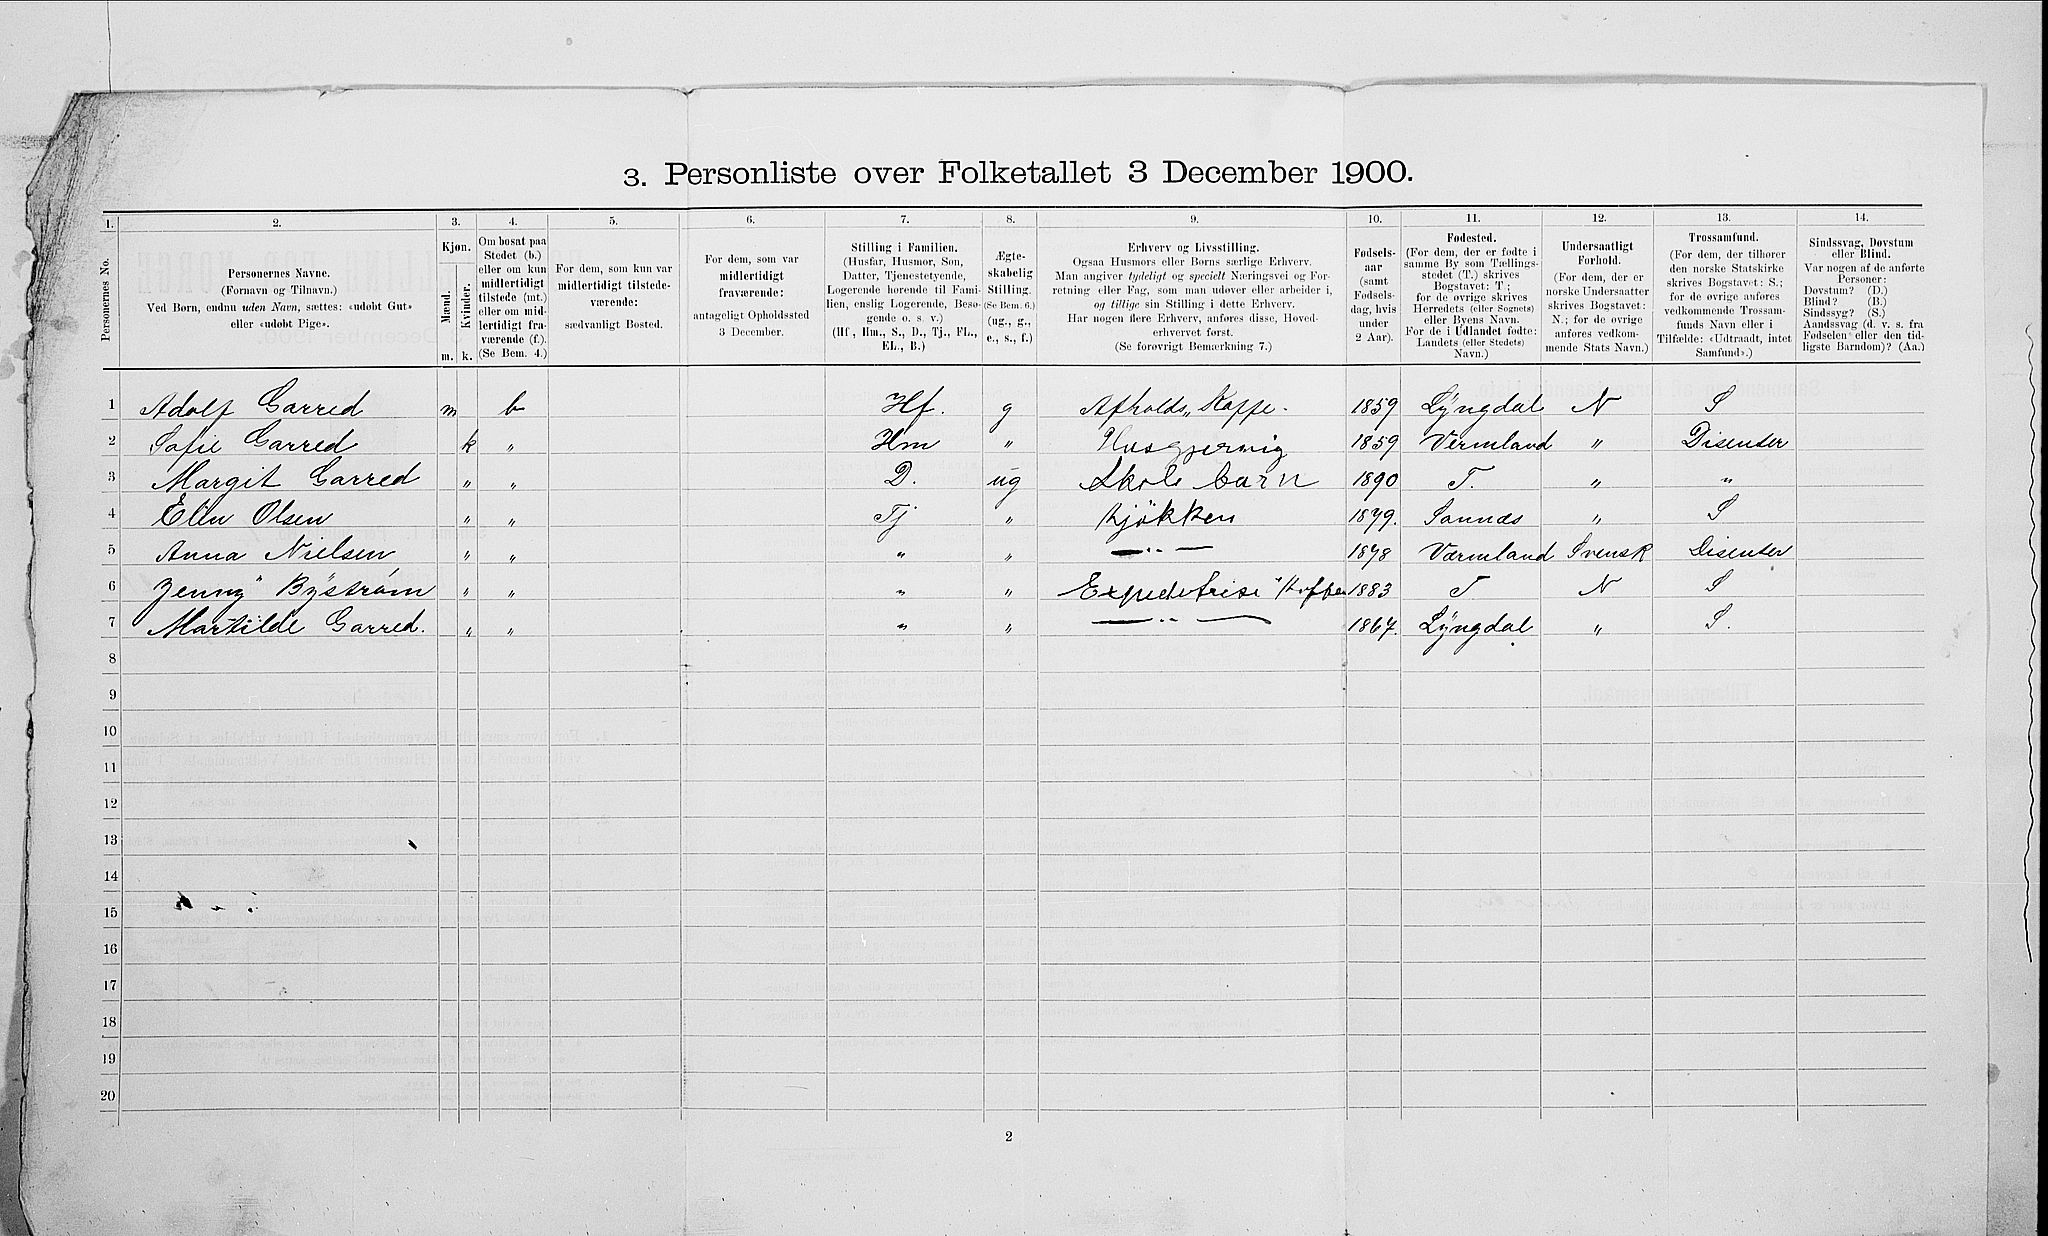 3. Personliste over Folketallet 3 December 1900.
1. 2. 3. 4. 5. 6. 7. 8. 9. 10. 11. 12. 13. 14.
Personernes No.
Personernes Navne.
(Fornavn og Tilnavn.)
Ved Børn, endnu uden Navn, sættes: «udøbt Gut»
eller «udøbt Pige».
Kjøn.
Mænd.
Kvinder.
m. k.
Om bosat paa
Stedet (b.)
eller om kun
midlertidigt
tilstede (mt.)
eller om mid-
lertidigt fra-
værende (f.).
(Se Bem. 4.)
For dem, som kun var
midlertidigt tilstede-
værende:
sædvanligt Bosted.
For dem, som var
midlertidigt
fraværende:
antageligt Opholdssted
3 December.
Stilling i Familien.
(Husfar, Husmor, Søn,
Datter, Tjenestetyende,
Logerende hørende til Fami-
lien, enslig Logerende, Besø-
gende o. s. v.)
(Hf., Hm., S., D., Tj., FL.,
EL., B.)
Ægte-
skabelig
Stilling.
(Se Bem. 6.)
(ug., g.,
e., s., f.)
Erhverv og Livsstilling.
Ogsaa Husmors eller Børns særlige Erhverv.
Man angiver tydeligt og specielt Næringsvei og For-
retning eller Fag, som man udøver eller arbeider i,
og tillige sin Stilling i dette Erhverv.
Har nogen flere Erhverv, anføres disse, Hoved-
erhvervet først.
(Se forøvrigt Bemærkning 7.)
Fødsels-
aar
(samt
Fødsels-
dag, hvis
under
2 Aar).
Fødested.
(For dem, der er fødte i
samme By som Tællings-
stedet (T.) skrives
Bogstavet: T;
for de øvrige skrives
Herredets (eller Sognets)
eller Byens Navn.
For de i Udlandet fødte:
Landets (eller Stedets)
Navn.)
Undersaatligt
Forhold.
(For dem, der er
norske Undersaatter
skrives Bogstavet:
N.; for de øvrige
anføres vedkom-
mende Stats Navn.)
Trossamfund.
(For dem, der tilhører
den norske Statskirke
skrives Bogstavet: S.;
for de øvrige anføres
vedkommende Trossam-
funds Navn eller i
Tilfælde: «Udtraadt, intet
Samfund».)
Sindssvag, Døvstum
eller Blind.
Var nogen af de anførte
Personer:
Døvstum? (D.)
Blind? (B.)
Sindssyg? (S.)
Aandssvag (d. v. s. fra
Fødselen eller den tid-
ligste Barndom)? (Aa.)
1 Adolf Garred m b Hf. g Afholds„ Kaffe. 1859 Lÿngdal N S
2 Sofie Garred k „ Hm „ Husgjerning 1859 Vermland „ Disenter
3 Margit Garred „ „ D. ug Skole barn 1890 T. „ „
4 Elin Olsen „ „ Tj „ kjøkken 1879. Sannes „ S
5 Anna Nielsen „ „ „ „ — „ — 1878 Værmland Svensk Disenter
6 Jenny Bÿstrøm „ „ „ „ Expeditrise 1883 T N S
7 Martilde Garred. „ „ „ „ — „ — 1867. Lÿngdal „ S.
8
9
10
11
12
13
14
15
16
17
18
19
20
2